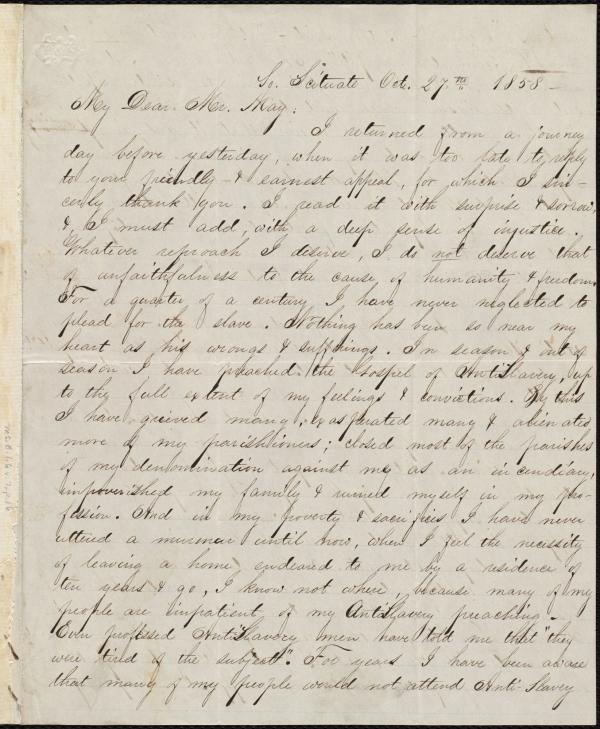 So. Scituate Oct. 27.th 1858-
My Dear Mr. May:
I returned from a journey
day before yesterday, when it was too late to reply
to your friendly & earnest appeal, for which I sin-
cerely thank you. I read it with surprise & sorrow,
& I must add, with a deep sense of injustice.
Whatever reproach I deserve, I do not deserve that
of unfaithfulness to the cause of humanity & freedom.
For a quarter of a century I have never neglected to
plead for the slave. Nothing has been so near my
heart as his wrongs & sufferings. In season & out of
season I have preached the Gospel of AntiSlavery, up
to the full extent of my feelings & convictions. By this
I have grieved many, exasperated many & alienated
more of my parishioners; closed most of the parishes
of my denomination against me as an incendiary,
impoverished my family & ruined myself in my pro-
fession. And in my poverty & sacrifices I have never
uttered a murmur until now, when I feel the necessity
of leaving a home, endeared to me by a residence of
ten years & go, I know not where, because many of my
people are impatient of my AntiSlavery preaching.-
Even professed AntiSlavery men have told me that "they
were tired of the subject". For years I have been aware
that many of my people would not attend Anti-Slavery